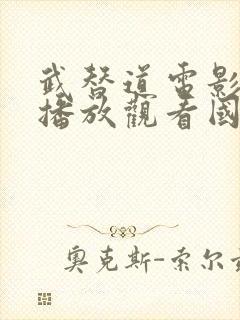 武替道電影
播放觀看國
奧克斯-索尔